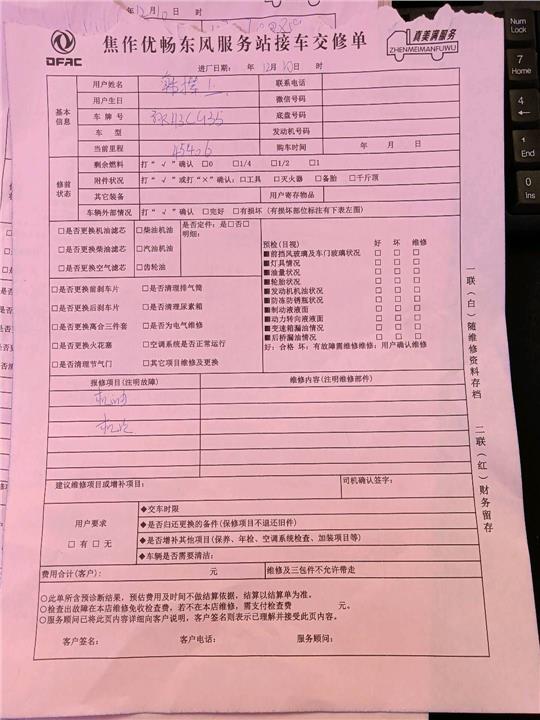 年12月 日 时
DFAC
焦作优畅东风服务站接车交修单
真美满服务
ZHENMEIMANFUWU
进厂日期: 年12月10日 时
基本信息
用户姓名 联系电话
用户生日 微信号码
车 牌 号 底盘号码
车 型 发动机号码
当前里程 45406 购车时间 年 月 日
修前状态
剩余燃料 打“√”确认 □0 □1/4 □1/2 □1
附件状况 打“√”或打“×”确认:□工具 □灭火器 □备胎 □千斤顶
其它装备 用户寄存物品
车辆外部情况 打“√”确认 □完好 □有损坏(有损坏部位标注有下表左面)
□是否更换机油滤芯 □柴油机油 是否定件:是□否□
明细:
□是否更换柴油滤芯 □汽油机油
□是否更换空气滤芯 □齿轮油
□是否更换前刹车片 □是否清理排气筒
□是否更换后刹车片 □是否清理尿素箱
□是否更换离合三件套 □是否为电气维修
□是否更换火花塞 □空调系统是否正常运行
□是否清理节气门 □其它项目维修及更换
预检(目视) 好 坏 维修
■前挡风玻璃及车门玻璃状况 □ □ □
■灯具情况 □ □ □
■油量状况 □ □ □
■轮胎状况 □ □ □
■发动机机油状况 □ □ □
■防冻防锈瓶状况 □ □ □
■制动液液面 □ □ □
■动力转向液液面 □ □ □
■变速箱漏油情况 □ □ □
■后桥漏油情况 □ □ □
好:合格 坏:有故障需维修维修:用户确认维修
报修项目(注明故障) 维修内容(注明维修部件)
机油
机滤
建议维修项目或增补项目: 司机确认签字:
用户要求
□有□无
◆交车时限
◆是否归还更换的备件(保修项目不退还旧件)
◆是否增补其他项目(保养、年检、空调系统检查、加装项目等)
◆车辆是否需要清洁:
费用合计(客户): 元 维修及三包件不允许带走
○此单所含预诊断结果,预估费用及时间不做结算依据,结算以结算单为准。
○检查出故障在本店维修免收检查费,若不在本店维修,需支付检查费 元。
○服务顾问已将此页内容详细向客户说明,客户签名则表示已理解并接受此页内容。
客户签名: 客户电话: 服务顾问:
一联(白)随维修资料存档
二联(红)财务留存
Num
Lock
7
Home
4
←
1
End
0
Ins